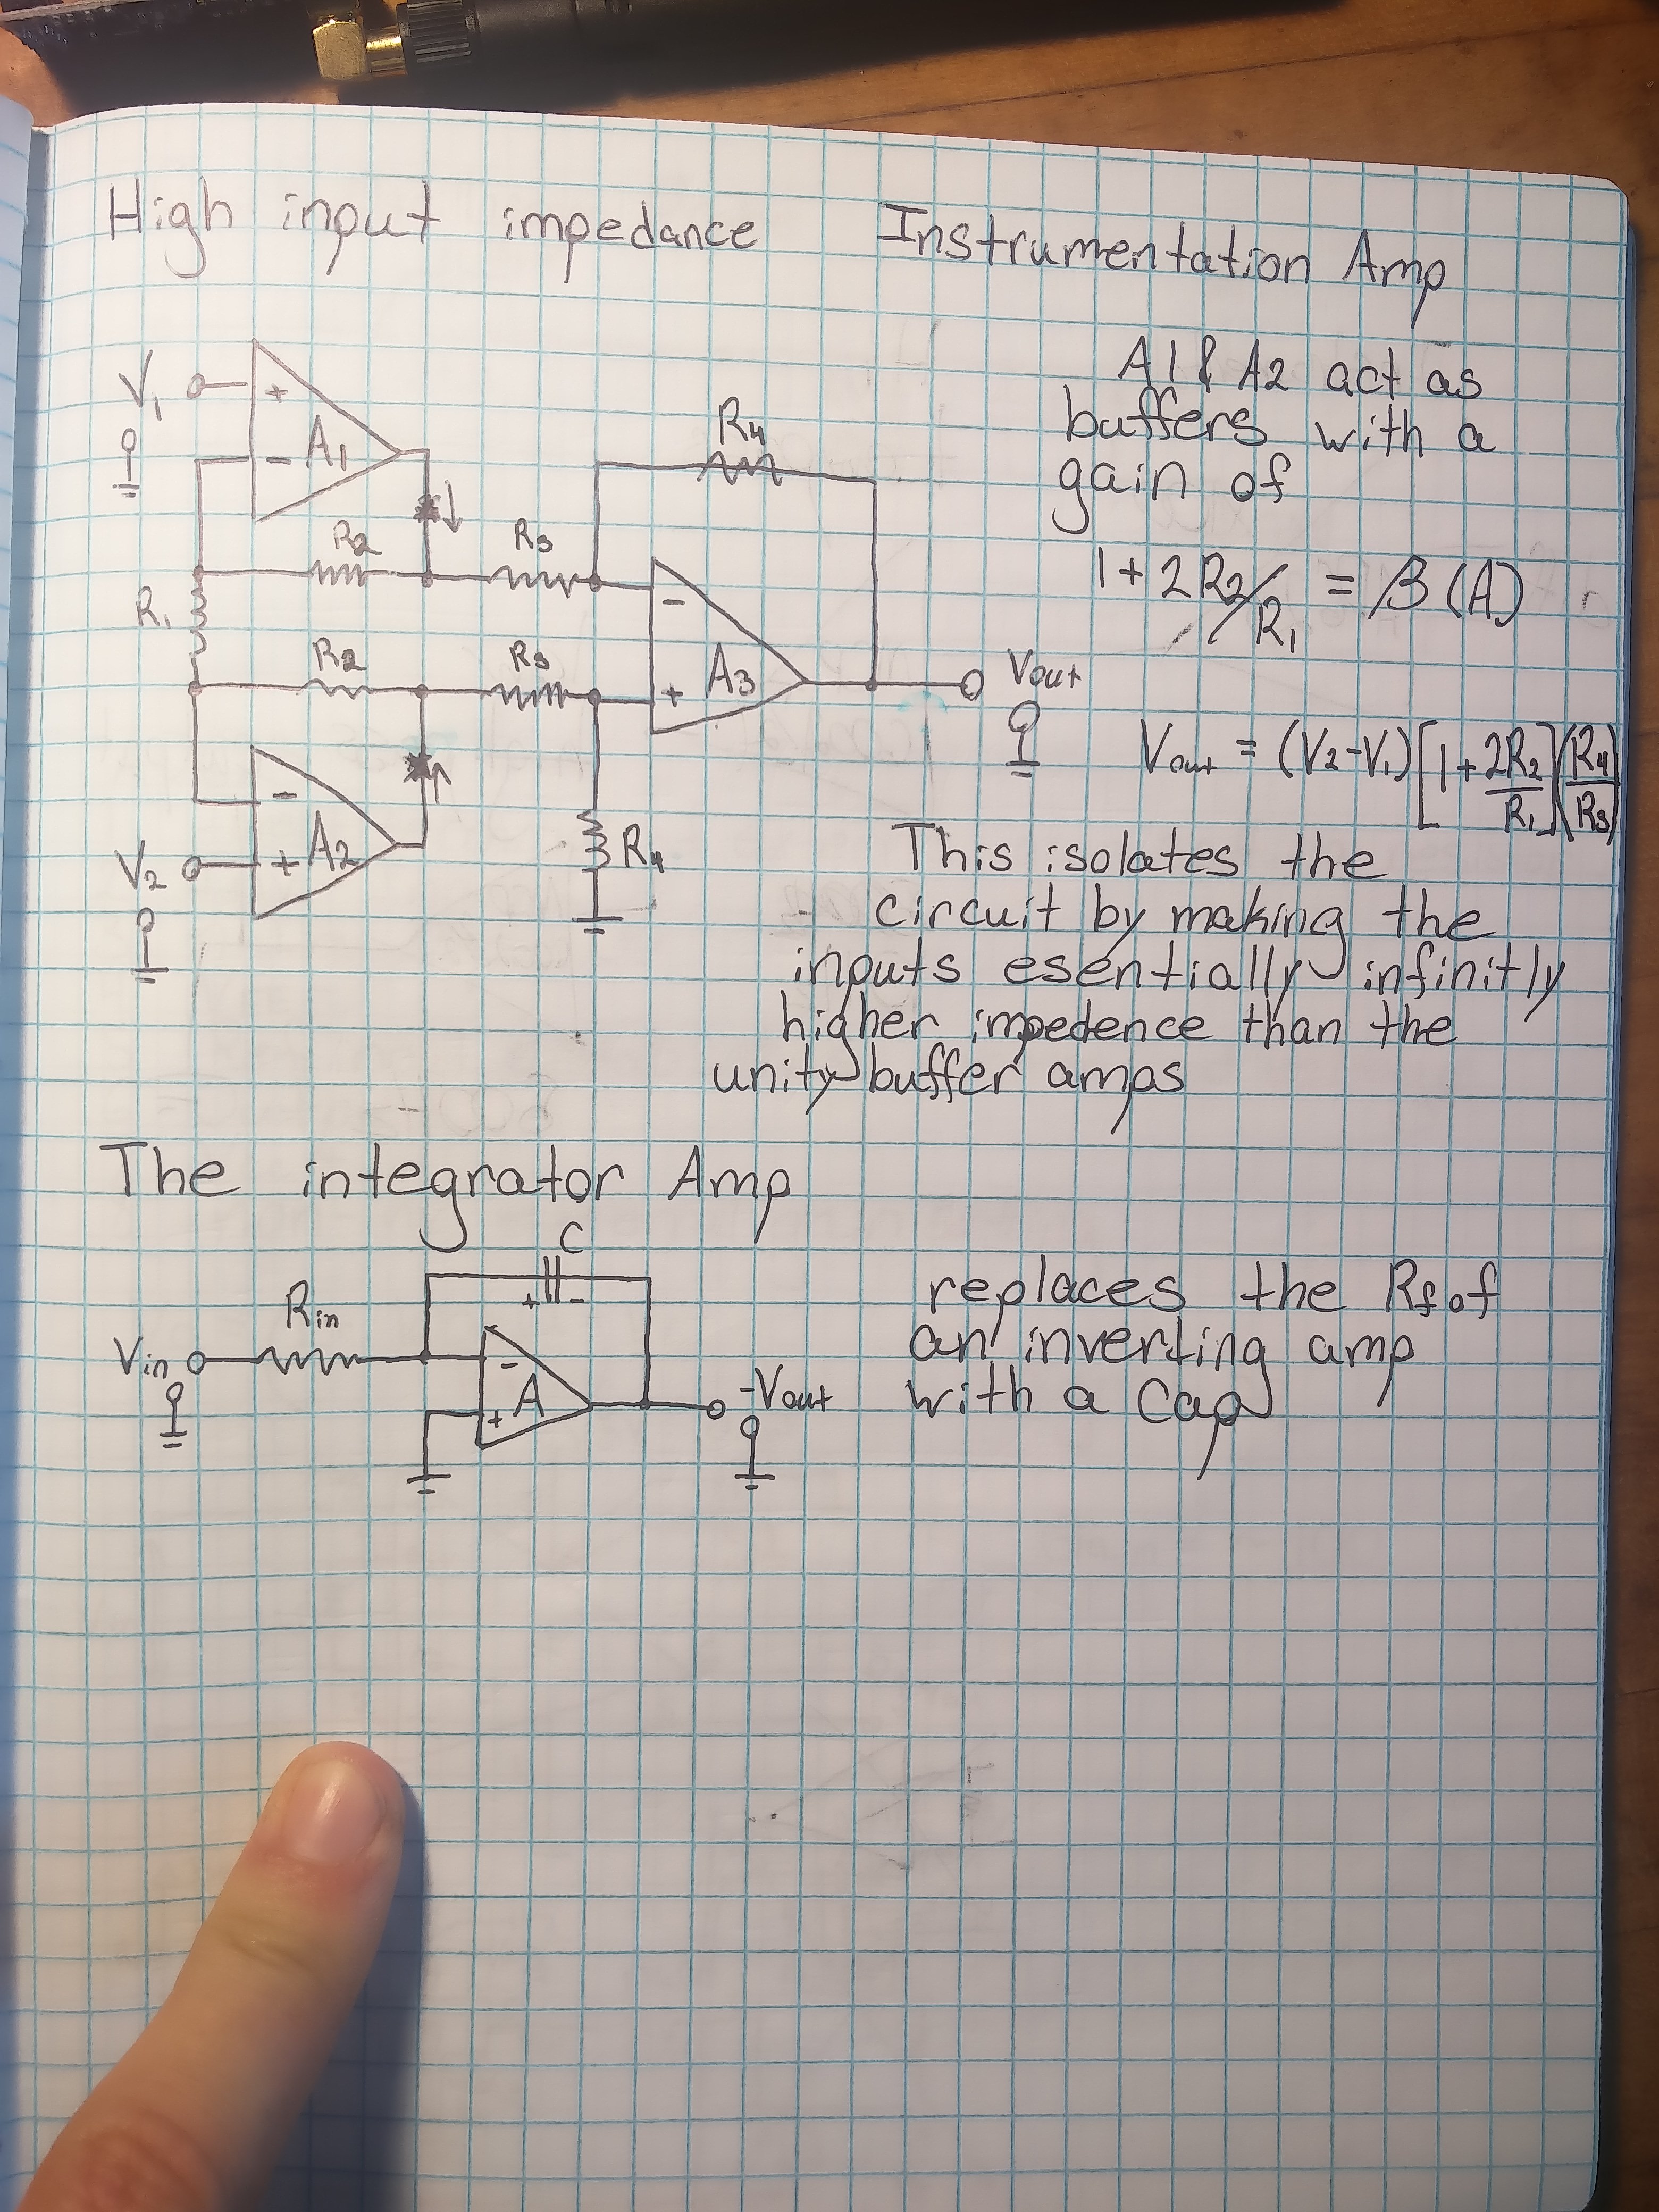 High input impedance Instrumentation Amp
V1
+
A1
-
R4
R2
R3
R1
-
R2
R3
A3
+
Vout
-
A2
+
V2
R4
A1 & A2 act as
buffers with a
gain of
1 + 2R2/R1 = β(A)
Vout = (V2-V1)[1 + 2R2/R1](R4/R3)
This isolates the
circuit by making the
inputs esentially infinitly
higher impedence than the
unity buffer amps
The integrator Amp
C
+ -
Rin
Vin
-
A
+
-Vout
replaces the Rf of
an inverting amp
with a Cap